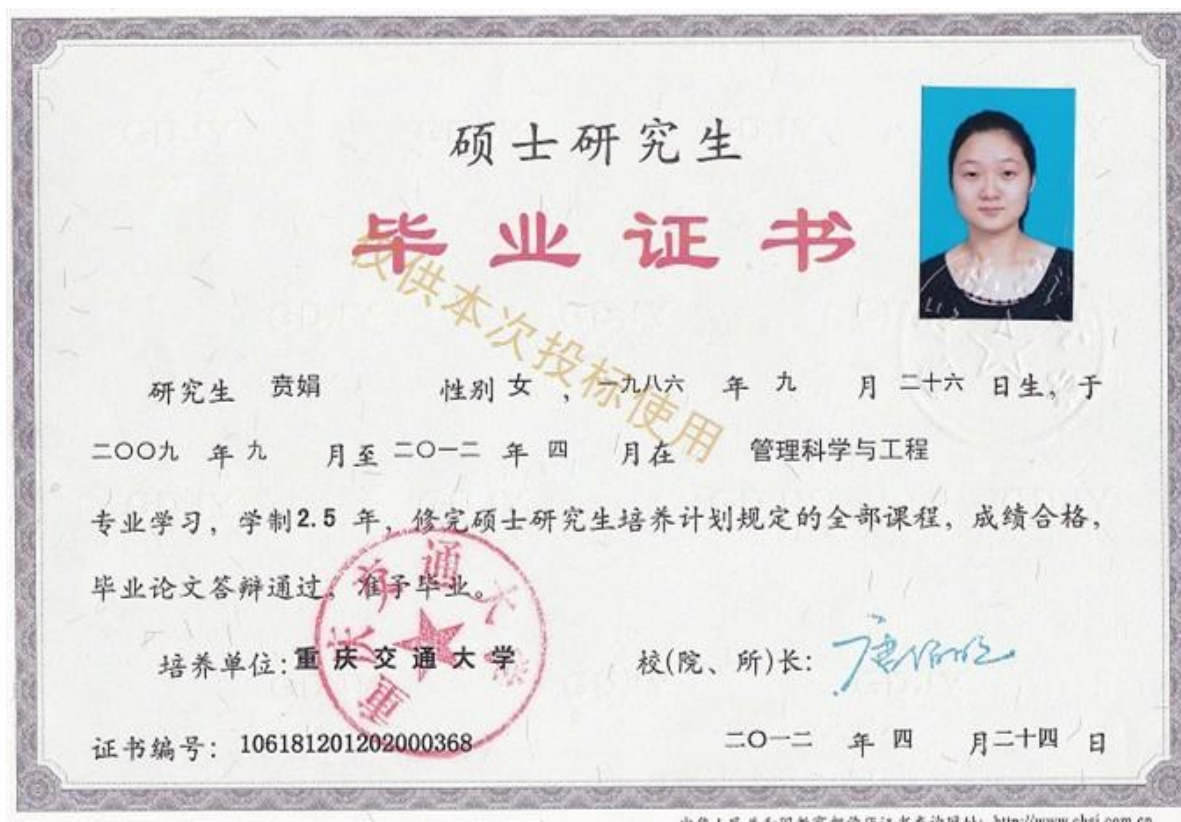 硕士研究生
毕业证书
仅供本次投标使用
研究生 贲娟 性别 女 , 一九八六 年 九 月 二十六 日生, 于
二〇〇九 年 九 月至 二〇一二 年 四 月在 管理科学与工程
专业学习, 学制2.5 年, 修完硕士研究生培养计划规定的全部课程, 成绩合格,
毕业论文答辩通过, 准予毕业。
培养单位:重庆交通大学
重庆交通大学
校(院、所)长:
证书编号: 106181201202000368
二〇一二 年 四 月二十四 日
http://www.chsi.com.cn